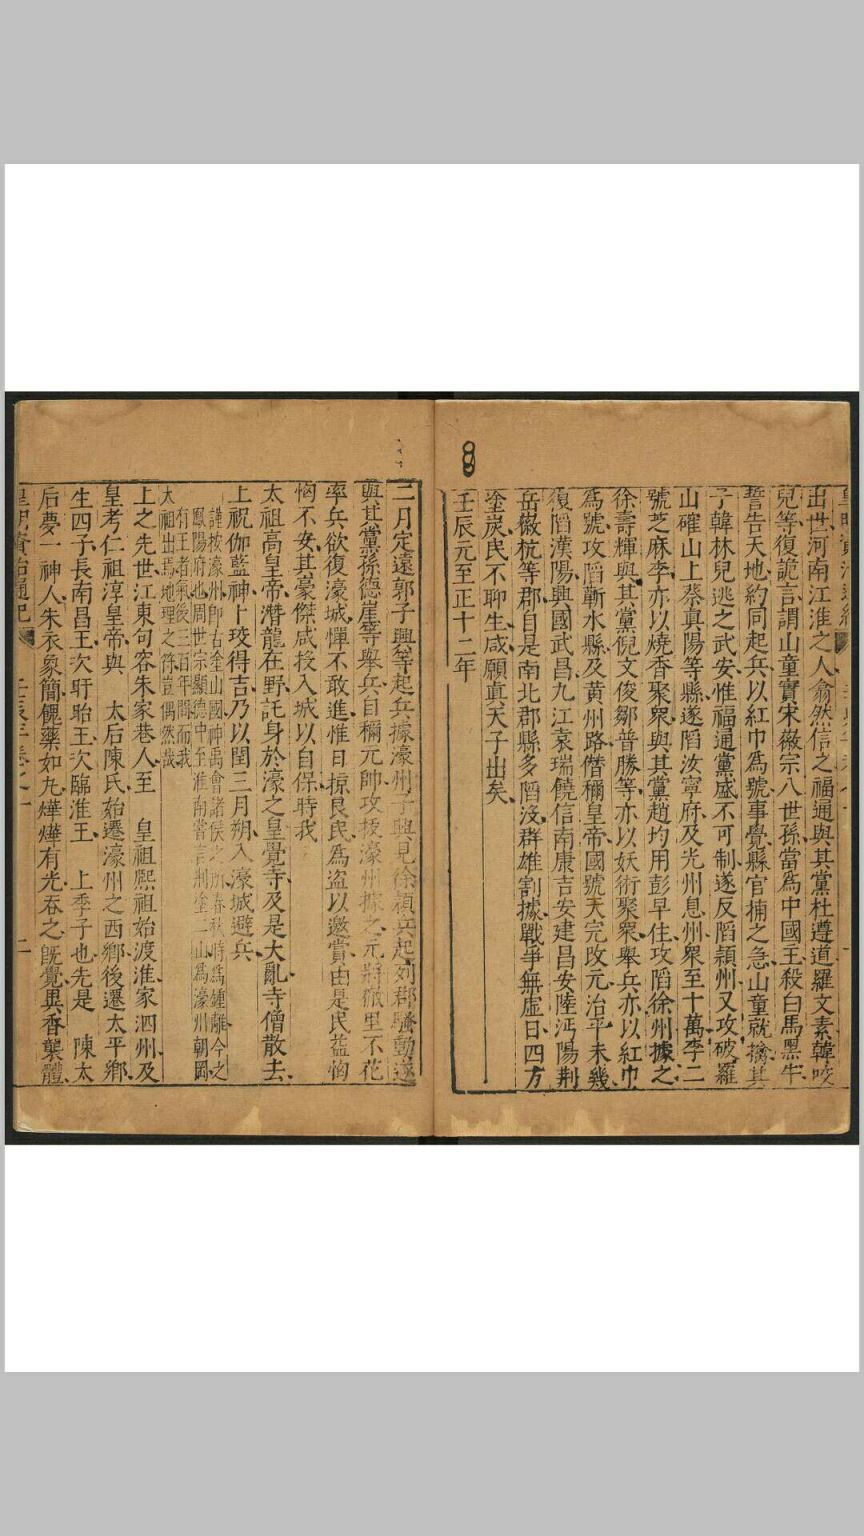 出世河南江淮之人翕然信之福通與其黨杜遵道羅文素韓咬
兒等復詭言謂山童實宋徽宗八世孫當為中國主殺白馬黑牛
誓告天地約同起兵以紅巾為號事覺縣官捕之急山童就擒其
子韓林兒逃之武安惟福通黨盛不可制遂反陷潁州又攻破羅
山確山上蔡真陽等縣遂陷汝寧府及光州息州眾至十萬李二
號芝麻李亦以燒香聚眾與其黨趙均用彭早住攻陷徐州據之
徐壽輝與其黨倪文俊鄒普勝等亦以妖術聚眾舉兵亦以紅巾
為號攻陷蘄水縣及黃州路僭稱皇帝國號天完改元治平未幾
復陷漢陽興國武昌九江袁瑞饒信南康吉安建昌安陸沔陽荆
岳徽杭等郡自是南北郡縣多陷沒群雄割據戰爭無虛日四方
塗炭民不聊生咸願真天子出矣
壬辰元至正十二年
二月定遠郭子興等起兵據濠州子興見徐潁兵起列郡騷動遂
與其黨孫德崖等舉兵自稱元帥攻拔濠州據之元將徹里不花
率兵欲復濠城憚不敢進惟日掠良民為盜以邀賞由是民益恟
恟不安其豪傑咸投入城以自保時我
太祖高皇帝潛龍在野託身於濠之皇覺寺及是大亂寺僧散去
上祝伽藍神卜珓得吉乃以閏三月朔入濠城避兵
謹按濠州即古塗山國神禹會諸侯之所春秋時為鍾離今之
鳳陽府也周世宗顯德中至淮南嘗言荆塗二山為濠州朝岡
有王者氣後三百年間而我
太祖出焉地理之符豈偶然哉
上之先世江東句容朱家巷人至 皇祖熙祖始渡淮家泗州及
皇考仁祖淳皇帝與 太后陳氏始遷濠州之西鄉後遷太平鄉
生四子長南昌王次盱眙王次臨淮王 上季子也先是 陳太
后夢一神人朱衣象簡餽藥如丸燁燁有光吞之既覺異香襲體
皇明資治通紀 壬辰年卷之一 二